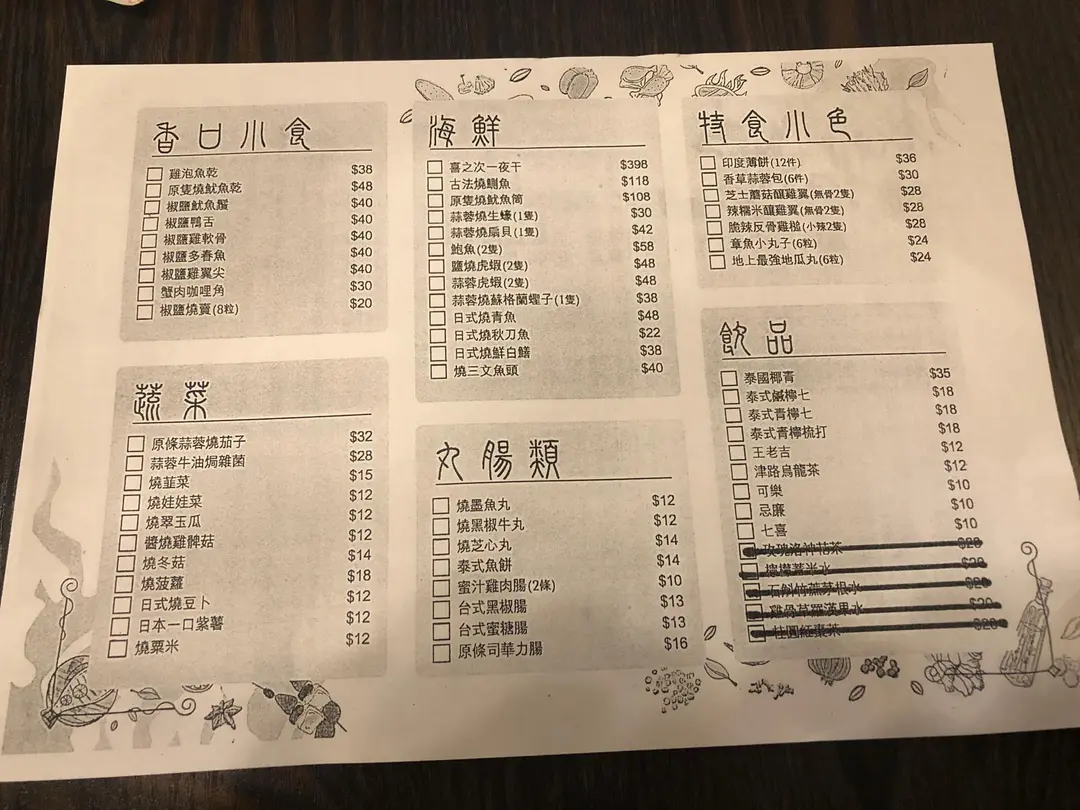 香口小食
雞泡魚乾 $38
原隻燒魷魚乾 $48
椒鹽魷魚鬚 $40
椒鹽鴨舌 $40
椒鹽雞軟骨 $40
椒鹽多春魚 $40
椒鹽雞翼尖 $40
蟹肉咖哩角 $30
椒鹽燒賣(8粒) $20
蔬菜
原條蒜蓉燒茄子 $32
蒜蓉牛油焗雜菌 $28
燒韮菜 $15
燒娃娃菜 $12
燒翠玉瓜 $12
醬燒雞髀菇 $12
燒冬菇 $14
燒菠蘿 $18
日式燒豆卜 $12
日本一口紫薯 $12
燒粟米 $12
海鮮
喜之次一夜干 $398
古法燒鱲魚 $118
原隻燒魷魚筒 $108
蒜蓉燒生蠔(1隻) $30
蒜蓉燒扇貝(1隻) $42
鮑魚(2隻) $58
鹽燒虎蝦(2隻) $48
蒜蓉虎蝦(2隻) $48
蒜蓉燒蘇格蘭蟶子(1隻) $38
日式燒青魚 $48
日式燒秋刀魚 $22
日式燒鮮白鱔 $38
燒三文魚頭 $40
丸腸類
燒墨魚丸 $12
燒黑椒牛丸 $12
燒芝心丸 $14
泰式魚餅 $14
蜜汁雞肉腸(2條) $10
台式黑椒腸 $13
台式蜜糖腸 $13
原條司華力腸 $16
特食小色
印度薄餅(12件) $36
香草蒜蓉包(6件) $30
芝士蘑菇釀雞翼(無骨2隻) $28
辣糯米釀雞翼(無骨2隻) $28
脆辣反骨雞槌(小辣2隻) $28
章魚小丸子(6粒) $24
地上最強地瓜丸(6粒) $24
飲品
泰國椰青 $35
泰式鹹檸七 $18
泰式青檸七 $18
泰式青檸梳打 $18
王老吉 $12
津路烏龍茶 $12
可樂 $10
忌廉 $10
七喜 $10
玫瑰洛神花茶 $20
檸檬薏米水 $20
石斛竹蔗茅根水 $20
雞骨草羅漢果水 $20
桂圓紅棗茶 $20